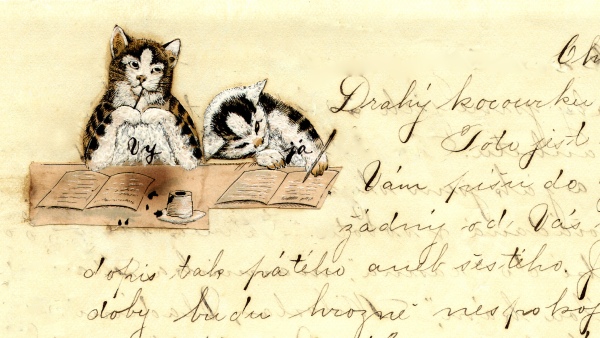 Drahý kocourku
Vy já
Toto jest
Vám píšu do
žádný od Vás
dopis tak pátého aneb šestého.
doby budu hrozně nespokoj